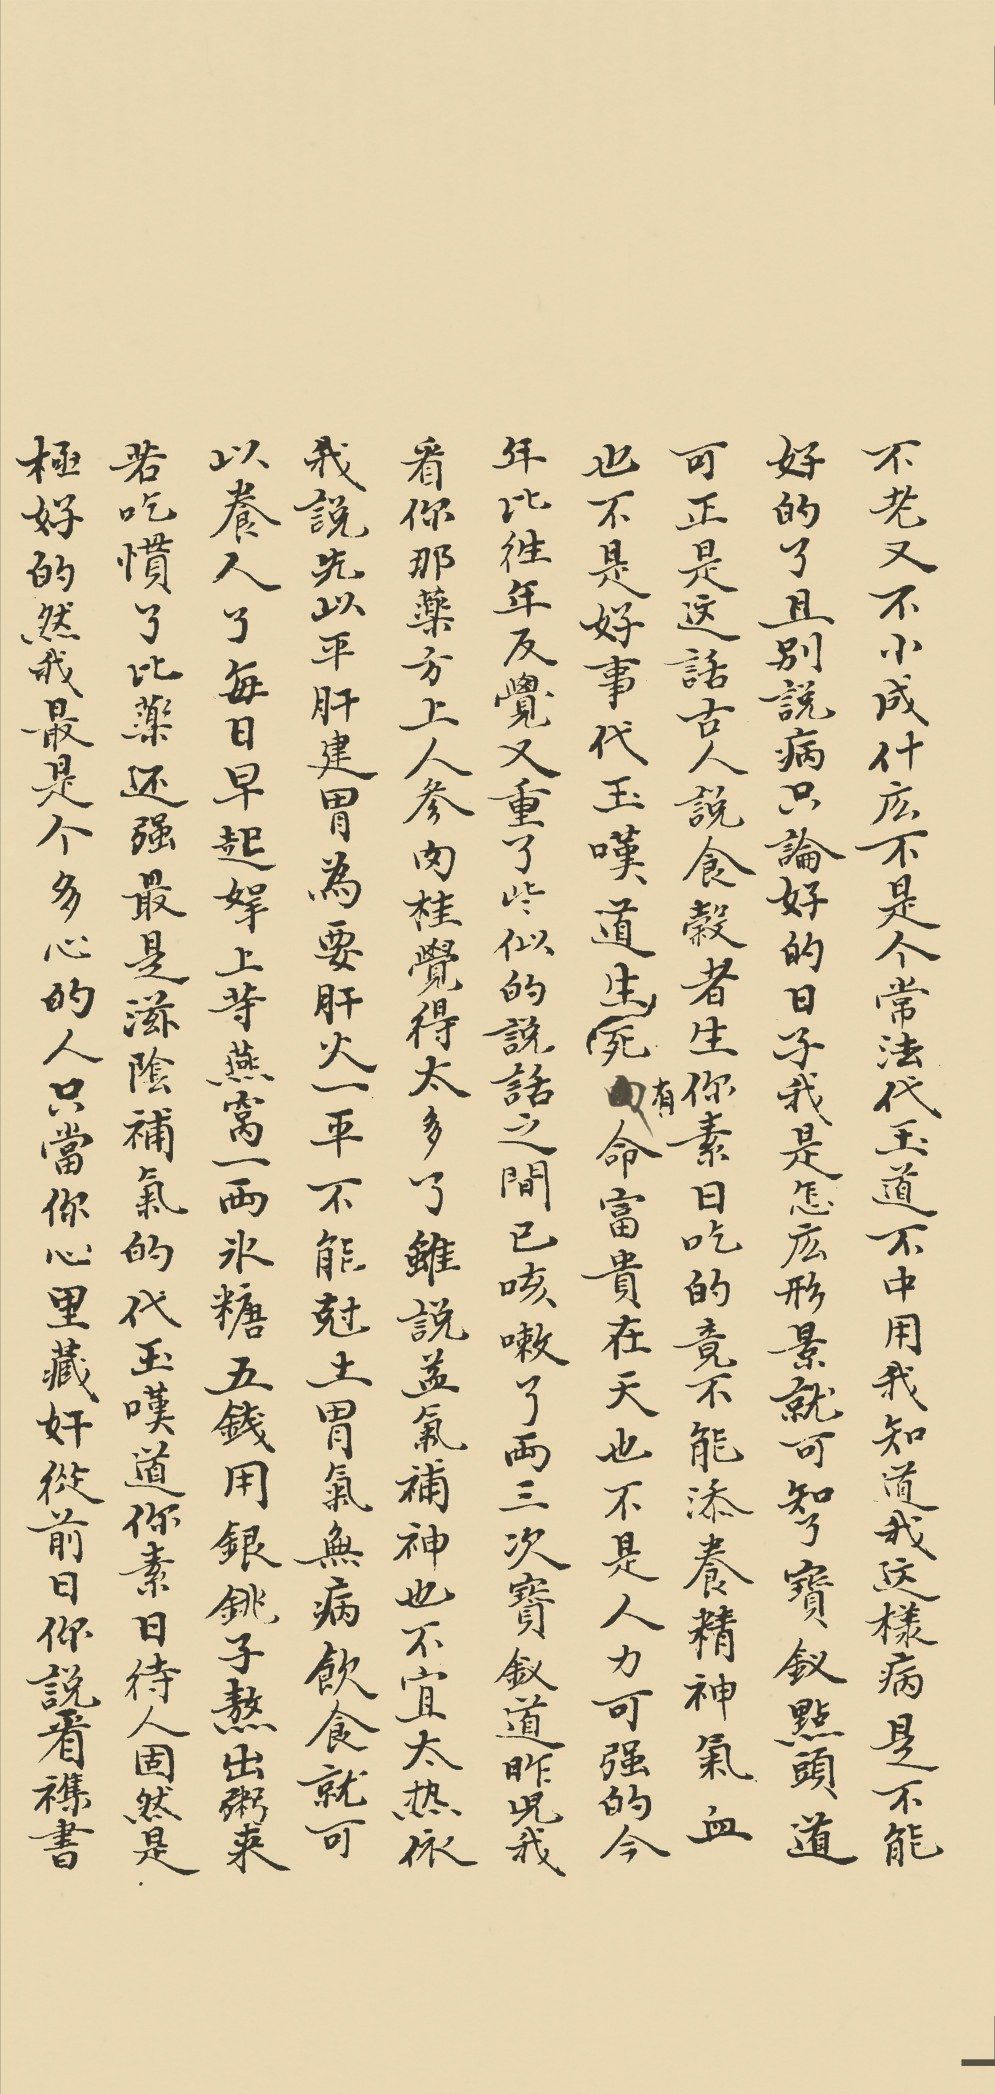 不老又不小成什庅不是个常法代玉道不中用我知道我这樣病是不能
好的了且别說病只論好的日子我是怎庅形景就可知了寶釵點頭道
可正是这話古人說食穀者生你素日吃的竟不能添養精神氣血
也不是好事代玉嘆道生死有命富貴在天也不是人力可强的今
年比徃年反覺又重了些似的說話之間已咳嗽了两三次寶釵道昨児我
看你那藥方上人参肉桂覺得太多了雖說益氣補神也不宜太热依
我說先以平肝建胃為要肝火一平不能尅土胃氣無病飲食就可
以養人了每日早起㧱上等燕窩一两氷糖五錢用銀銚子熬出粥来
若吃慣了比藥还强最是滋陰補氣的代玉嘆道你素日待人固然是
極好的然我最是个多心的人只當你心里藏奸從前日你說看襍書